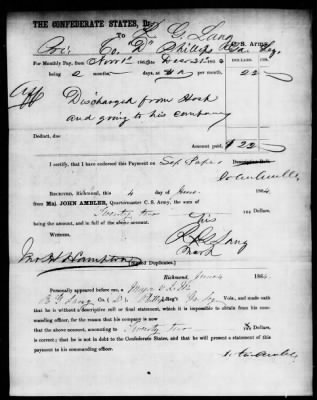 THE CONFEDERATE STATES, Dr.
To R. G. Lang
Pri Co. D Phillips Ga Leg. C. S. Army.
For Monthly Pay, from Nov 1st 1863 to Dec 31st 1863 DOLLARS. CTS.
being 2 months days, at 11 per month, 22
Discharged from Hosp
and going to his company
Deduct, due
Amount paid, $22
I certify, that I have endorsed this Payment on Sep. Paper Descriptive Roll.
RECEIVED, Richmond 4 1864,
from Maj. JOHN AMBLER, Quartermaster C. S. Army, the sum of
Twenty two Dollars,
being the amount, and in full of the above account.
WITNESS, his
R G Lang
mark
[Signed Duplicates.]
Richmond, 1864.
Personally appeared before me, a
R G Lang Co. (D) Phillips Leg Vols., and made oath
that he is without a descriptive roll or final statement, which it is impossible to obtain from his com-
manding officer, for the reason that his company is now
that the above account, amounting to Twenty two Dollars,
is correct; that he is not in debt to the Confederate States, and that he will present a statement of this
payment to his commanding officer.